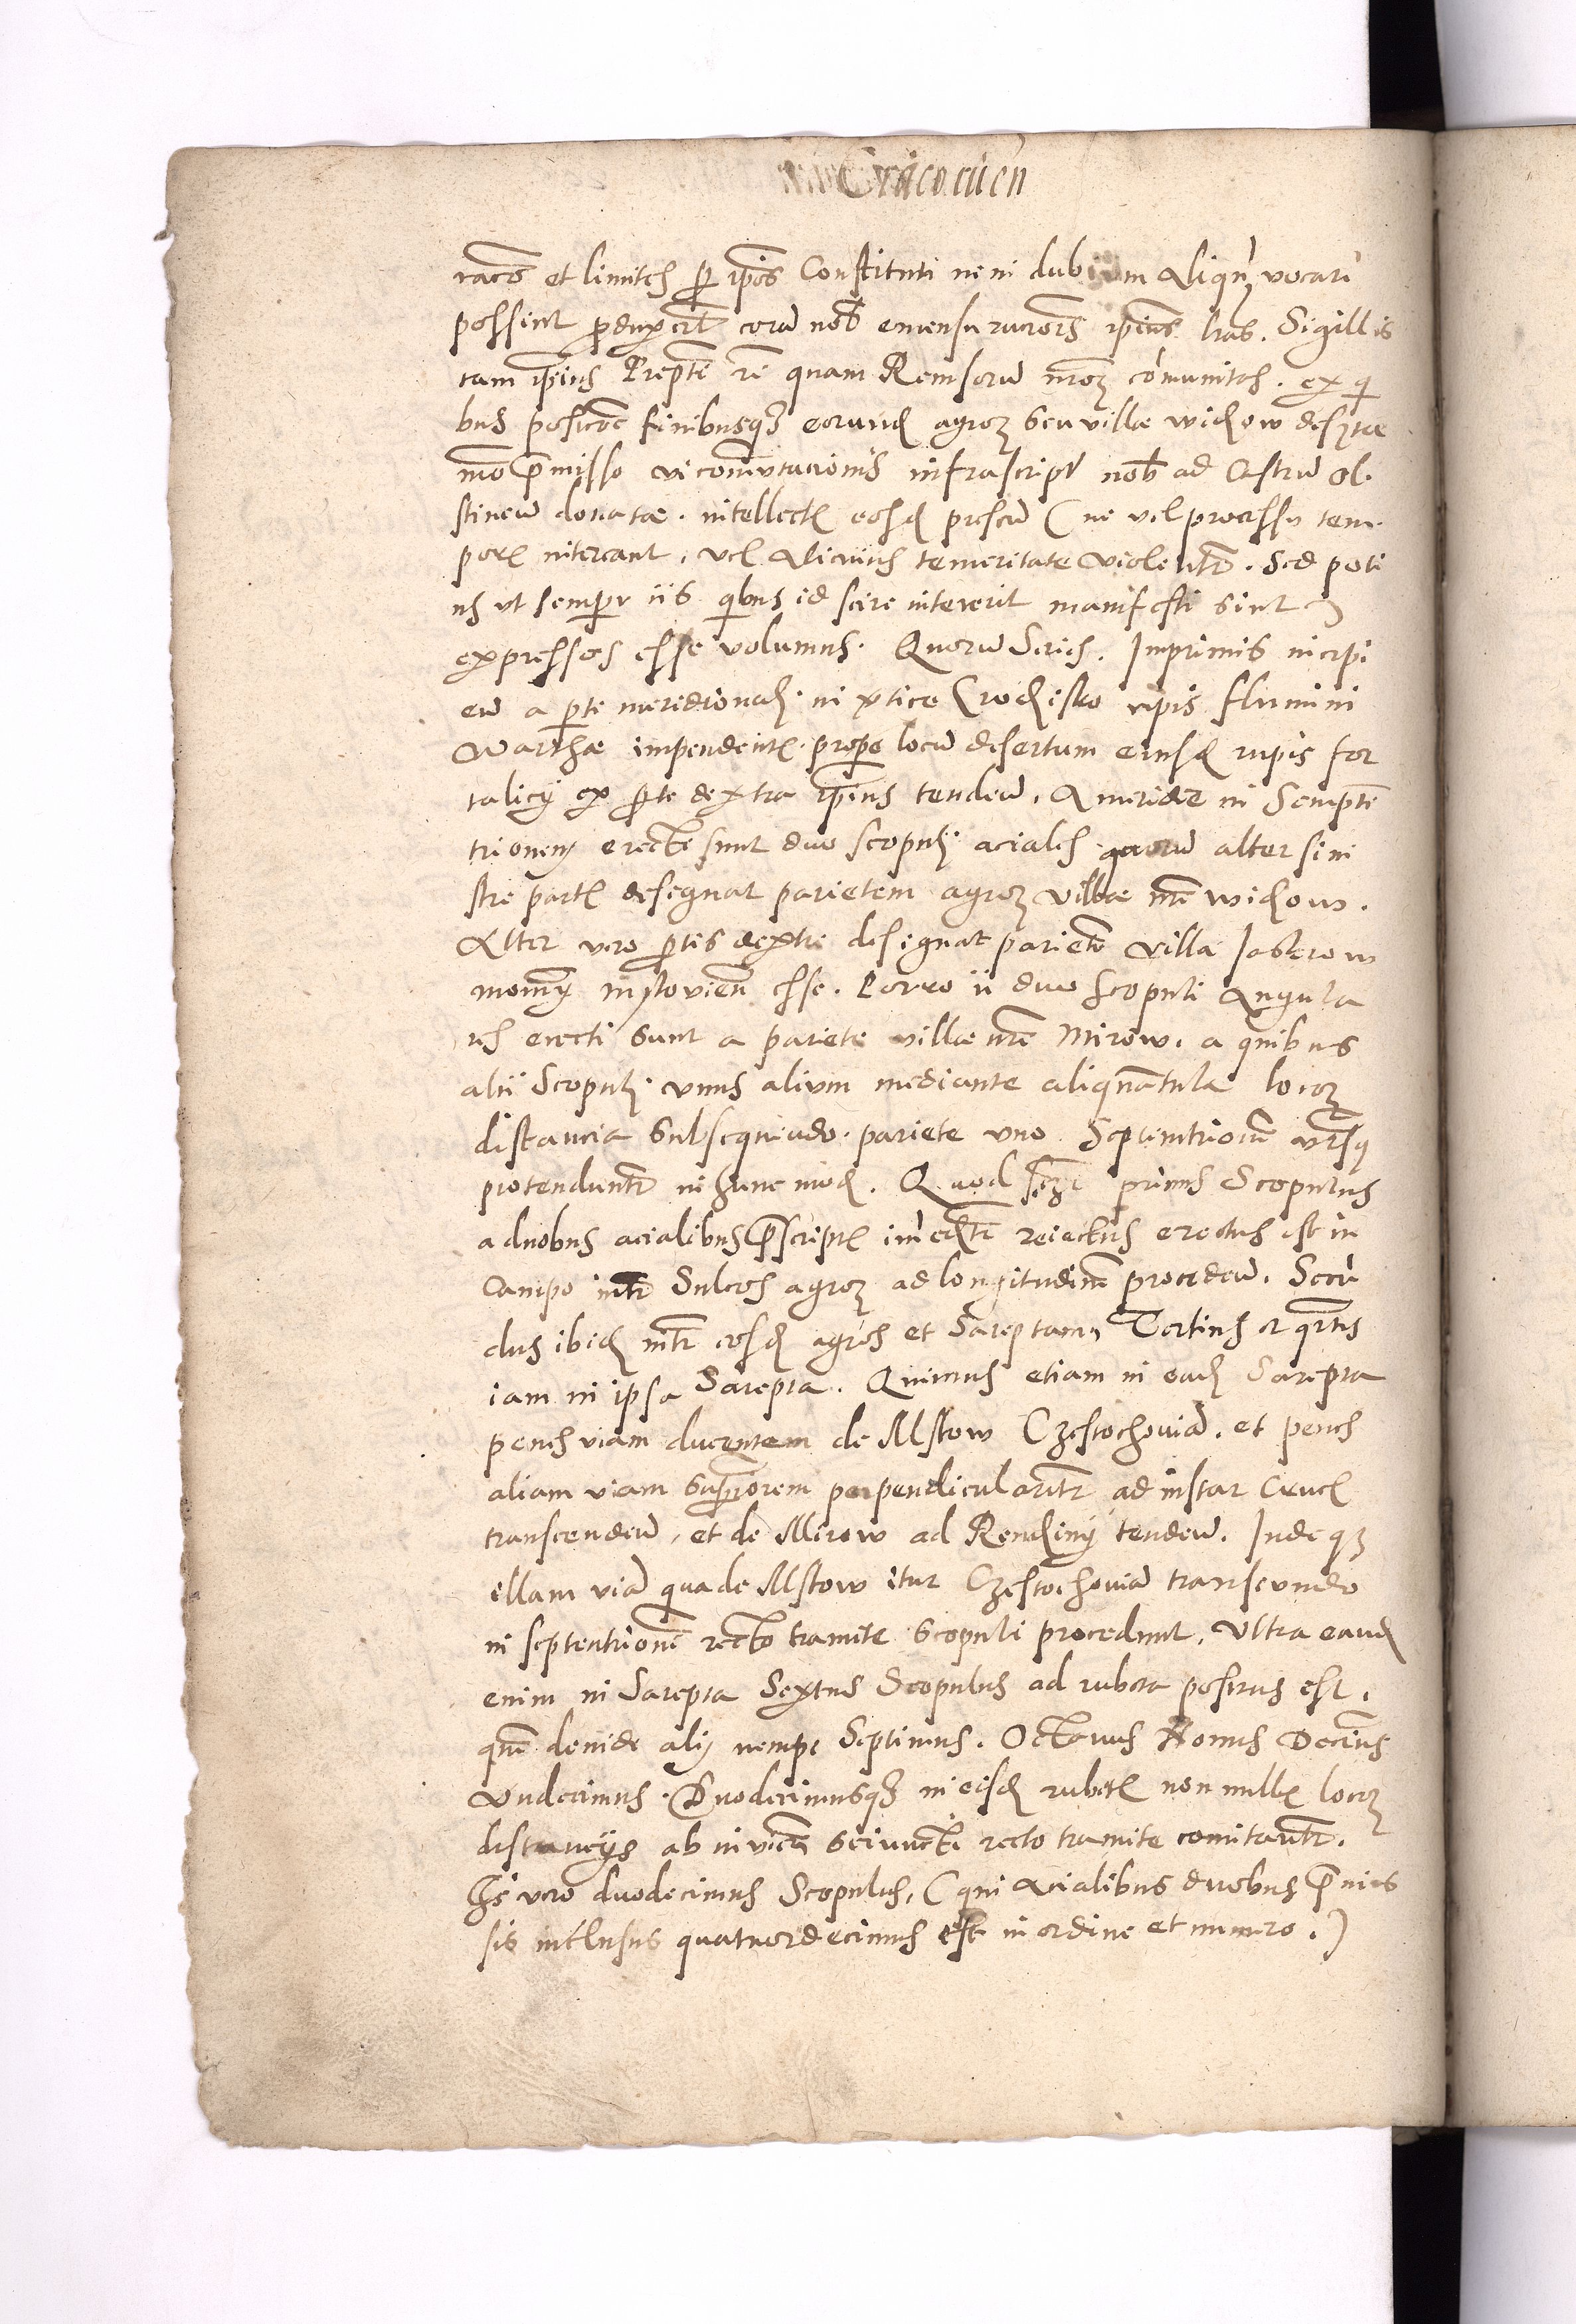 Cracovien
et limites p ipos Constituti ne in dubium aliqn vocari
possint coru nob emensuracionis ipius lras. Sigillis
tam ipius quam Remsoru nroz comunitas. ex qi
bus finibusqz eorund agroz seu villae widzow
mo pmisso vi comutacionis infrascript nob ad Castru Ol
stineum donatae. intellectis eosd (ne vel processu tem
poris intereant, vel alicuius temeritate violentr. Sed poti
us ut semper iis qibus id scire intererit manifesti sint)
expressos esse volumus. Quoru Series. Imprimis incipi
eu a pte meridionali in Grodzisko rupis flumini
Warthae impendentis prope locu desertum eiusd rupis for
talicij ex pte dextra ipius tendeu. A meridie in Septem
trionem erecti sunt duo scopuli aciales quoru alter sini
stre partis designat parietem agroz villae nre widzow.
Alter vero ptis dextre designat pariete villa Iaskrow
mstovien esse. Porro ii duo scopuli Angula
res erecti sunt a pariete villae nre Mirow. a quibus
alii Scopuli unus alium mediante aliquatula locoz
distancia subsequendo pariete uno Septemtrione
protenduntr in hunc mod. Quod primus Scopulus
a duobus acialibus pscriptis reiectus erectus est in
Campo intr Sulcos agroz ad longitudine procedeu. Secu
dus ibid intr eosd agros et Sareptam, Tertius et qrtus
iam in ipsa Sarepta. Quintus etiam in ead Sarepta
penes viam ducentem de Mstow Czestochovia. et penes
aliam viam supiorem perpendicularitr ad instar Crucis
transcendeu, et de Mirow ad Rendziny tendeu. Inde qz
illam via qua de Mstow itur Czestochovia transeundo
in septentrione recto tramite scopuli procedunt. Ultra eand
enim in Sarepta Sextus Scopulus ad rubeta positus est.
que deinde alij nempe Septimus. Octavus Nonus Decimus
Undecimus. Duodecimusqz in eisd rubetis non nullis locoz
distancijs ab invicem seiuncti recto tramite comitantr.
His vero duodecimus Scopulus, (qui acialibus duobus pmis
sis inclusus quatuordecimus est in ordine et numero.)